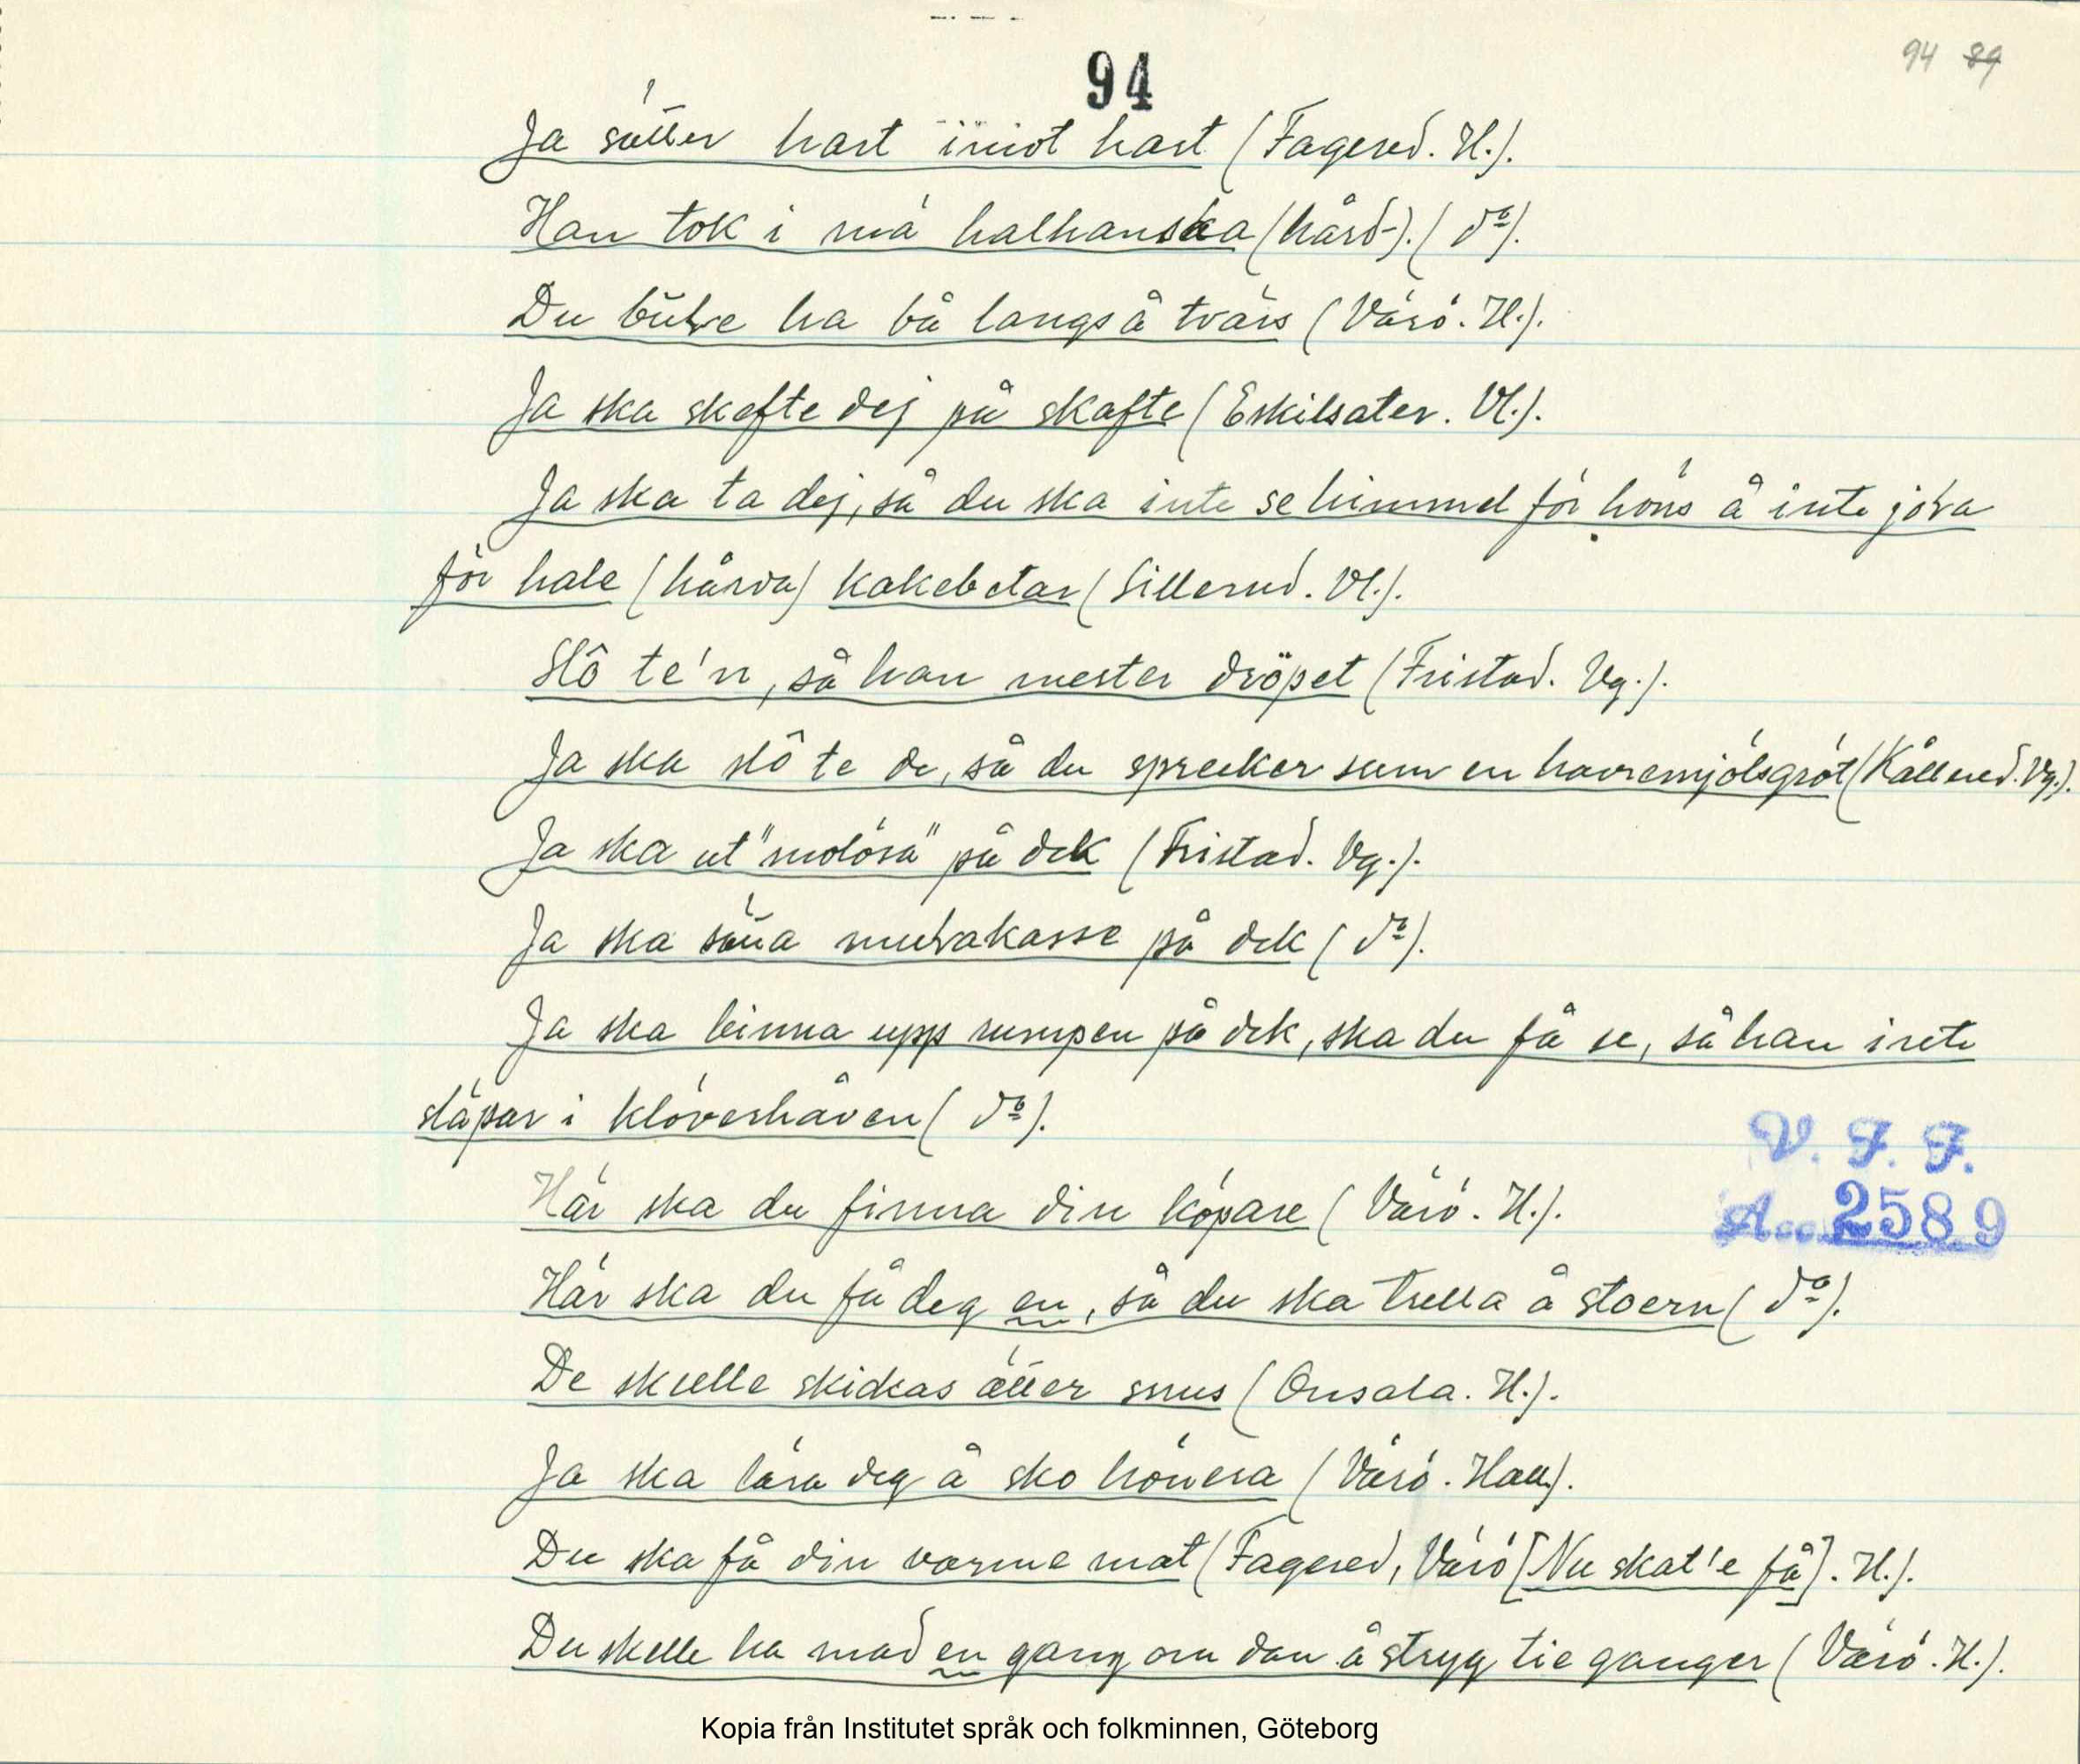 94
94 89
Ja sätter hart imot hart (Fagered. H.).
Han tok i mä halhanska (hård-). (do).
Du bure ha bå langs å tvärs (Värö. H.).
Ja ska skefte dej på skafte (Eskilsäter. Vl.).
Ja ska ta dej, så du ska inte se himmel för höns å inte jora
för hale (hårda) kakebetar (Sillerud. Vl.).
Slô te'n, så han mester dröpet (Fristad. Vg.).
Ja ska slô te de, så du sprecker sum en havremjölsgröt (Kållered. Vg.).
Ja ska ut "molösa" på dek (Fristad. Vg.).
Ja ska murakasse på dek (do).
Ja ska binna upp rumpen på dek, ska du få se, så han inte
släpar i klöverhåven (do).
Här ska du finna din köpare (Värö. H.).
Här ska du få deg en, så du ska trilla å stoern (do).
De skulle skickas ätter snus (Onsala. H.).
Ja ska lära deg å sko hönera (Värö. Hall.).
Du ska få din varme mat (Fagered, Värö [Nu skat'e få]. H.).
Du skulle ha mad en gang om dan å stryg tie ganger (Värö. H.).
V. F. F.
Acc. 2589
Kopia från Institutet språk och folkminnen, Göteborg